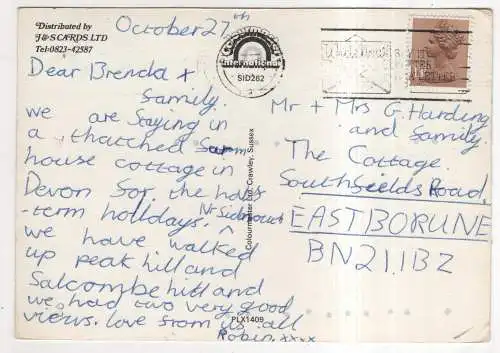 Distributed by
J&S CARDS LTD
Tel:0823-42587
October 27th
Dear Brenda +
family.
we are staying in
a thatched farm
house cottage in
Devon for the half
-term holidays. Nr Sidmouth
we have walked
up peak hill and
Salcombe hill and
we had two very good
views. love from us all
Robin. xxxx
Colourmaster
International
SID262
Colourmaster Ltd., Crawley, Sussex
PLX1409
Mr + Mrs G. Harding
and family.
The Cottage.
Southfields Road.
EASTBORUNE
BN21.1BZ